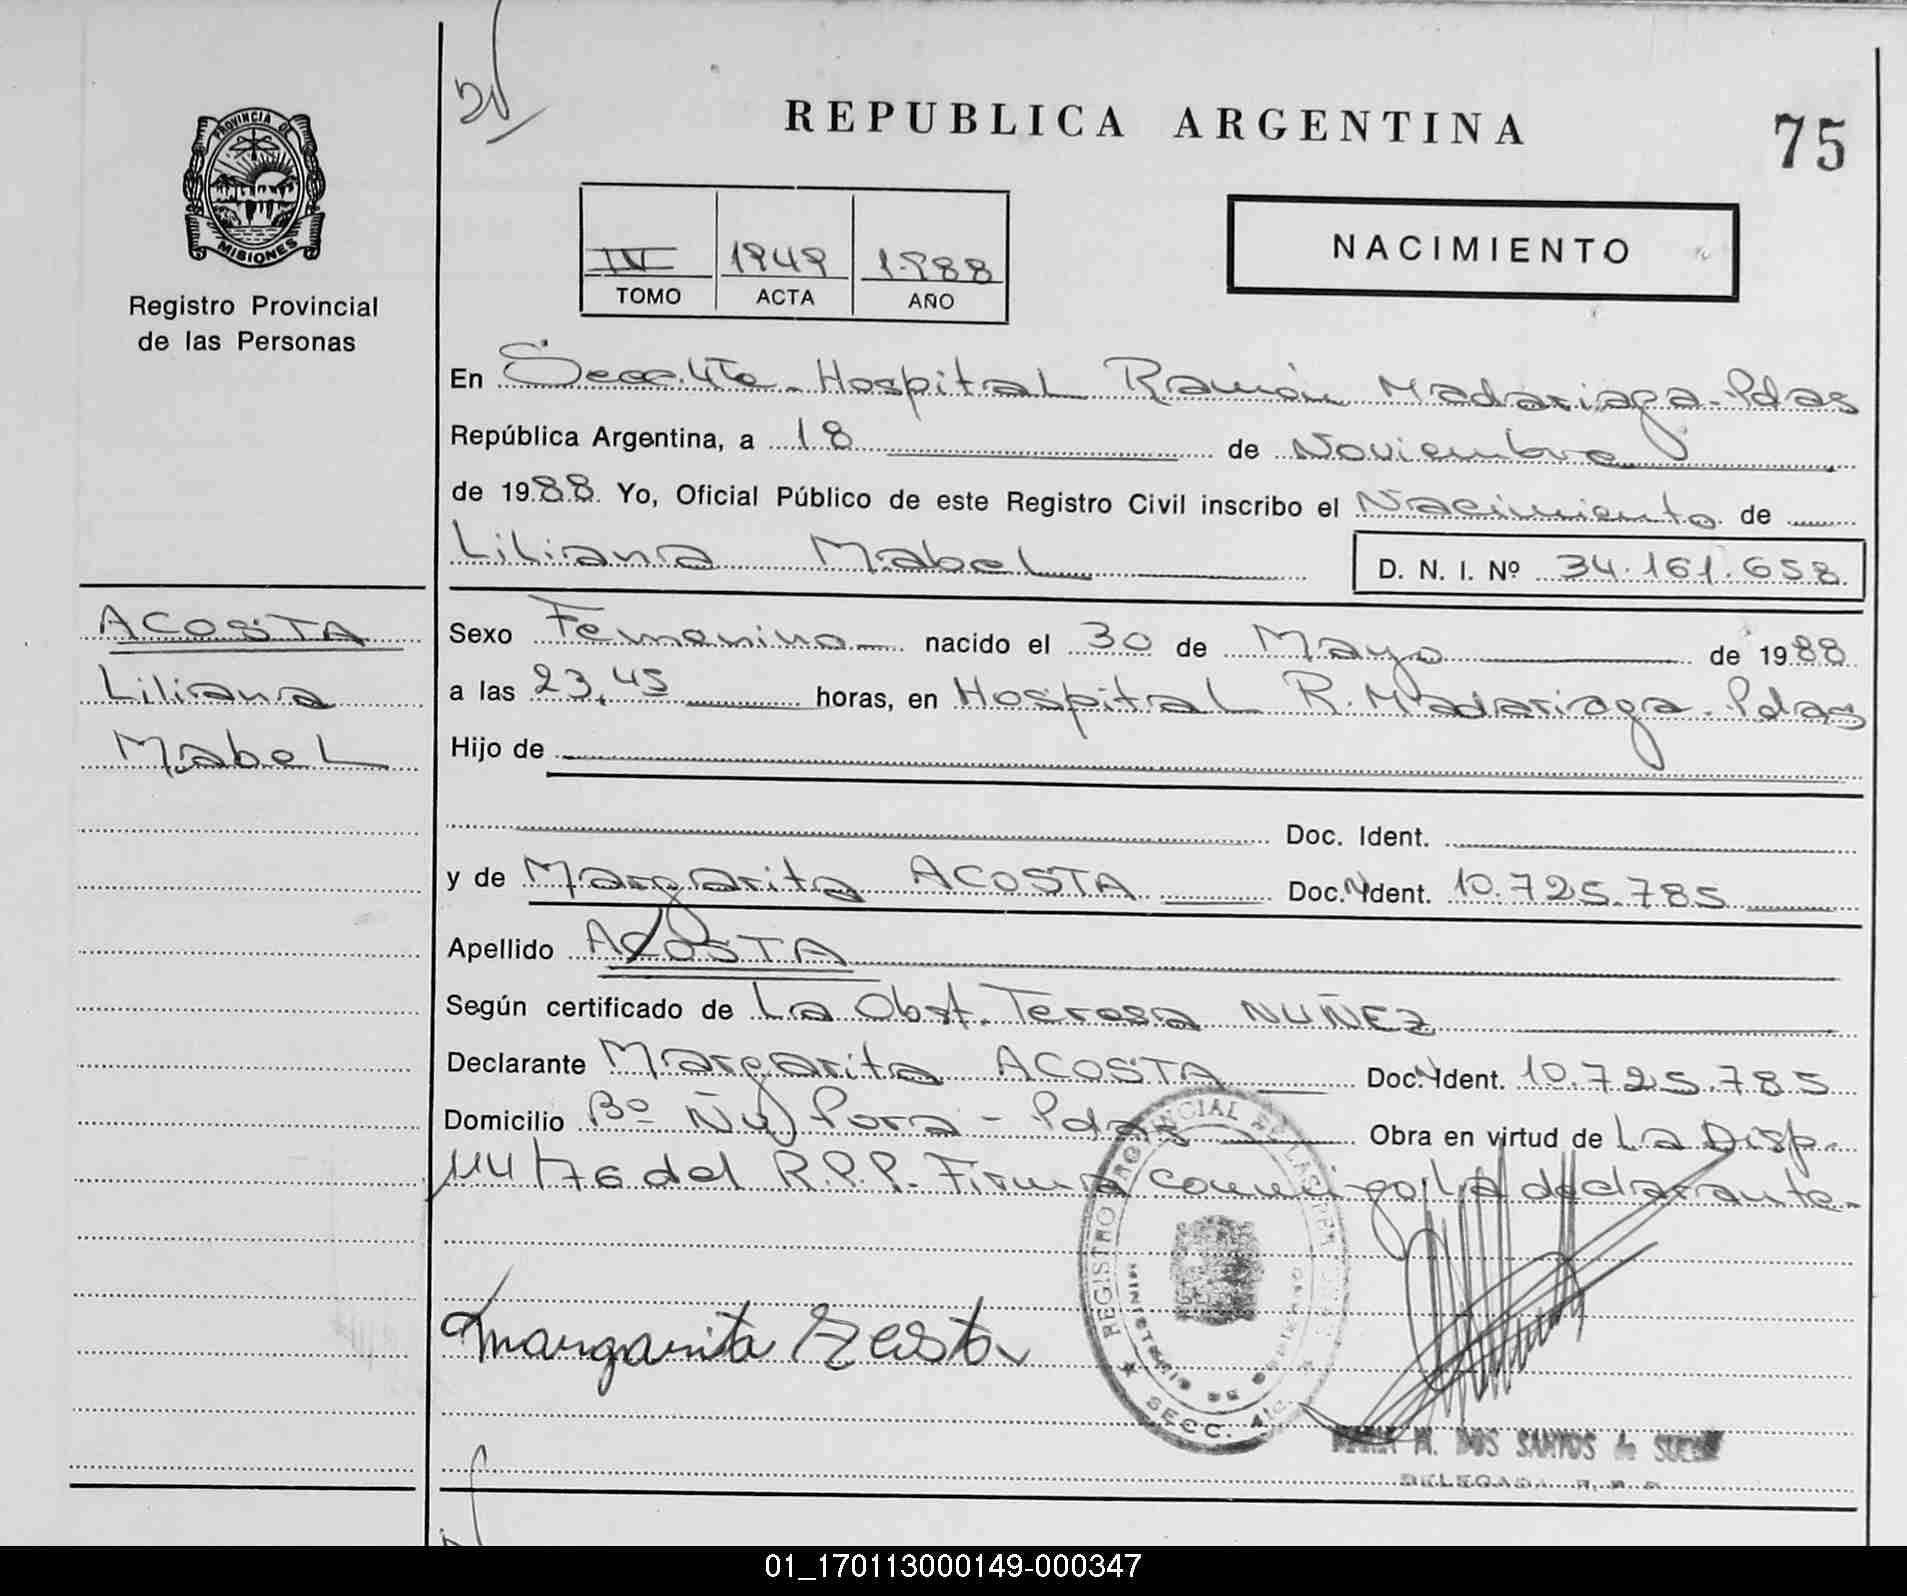 REPUBLICA ARGENTINA
75
PROVINCIA DE
MISIONES
Registro Provincial
de las Personas
IV 1949 1988
TOMO ACTA AÑO
NACIMIENTO
En Secc. 4ta - Hospital Ramón Madariaga - Pdas
República Argentina, a 18 de Noviembre
de 1988. Yo, Oficial Público de este Registro Civil inscribo el Nacimiento de
Liliana Mabel D. N. I. Nº 34.161.658
ACOSTA
Liliana
Mabel
Sexo Femenino nacido el 30 de Mayo de 1988
a las 23,45 horas, en Hospital R. Madariaga - Pdas
Hijo de
Doc. Ident.
y de Margarita ACOSTA Doc. Ident. 10.725.785
Apellido ACOSTA
Según certificado de La Obst. Teresa NUÑEZ
Declarante Margarita ACOSTA Doc. Ident. 10.725.785
Domicilio Bº Ñu Pora - Pdas Obra en virtud de La Disp.
114/76 del R.P.P. Firma conmigo la declarante-
REGISTRO PROVINCIAL DE LAS PERSONAS
MINISTERIO DE GOBIERNO
SECC. 4ta
Margarita
M. DOS SANTOS de
DELEGADA R. P. P.
01_170113000149-000347